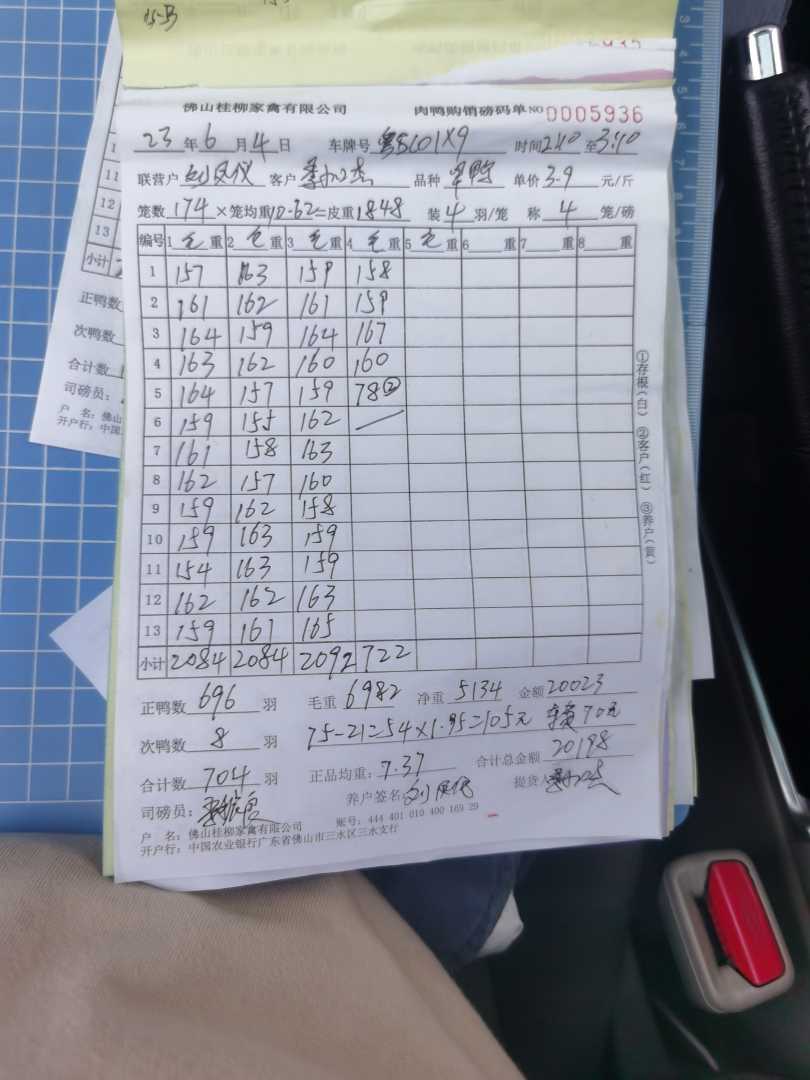 佛山桂柳家禽有限公司 肉鸭购销磅码单 NO 0005936
23 年 6 月 4 日 车牌号 时间 2:40 至 3:40
联营户 客户 品种 单价 3.9 元/斤
笼数 174 × 笼均重 10.62 = 皮重 1848 装 4 羽/笼 称 4 笼/磅
编号 1 毛 重 2 毛 重 3 毛 重 4 毛 重 5 毛 重 6 重 7 重 8 重
1 157 163 159 158
2 161 162 161 159
3 164 159 164 167
4 163 162 160 160
5 164 157 159 78②
6 159 155 162
7 161 158 163
8 162 157 160
9 159 162 158
10 159 163 159
11 154 163 159
12 162 162 163
13 159 161 165
小计 2084 2084 2092 722
正鸭数 696 羽 毛重 6982 净重 5134 金额 20023
次鸭数 8 羽 75-21=54×1.95=105元 70元
合计数 704 羽 正品均重: 7.37 合计总金额 20198
司磅员: 养户签名: 提货人
户 名: 佛山桂柳家禽有限公司 账号: 444 401 010 400 169 29
开户行: 中国农业银行广东省佛山市三水区三水支行
①存根(白) ②客户(红) ③养户(黄)
11
12
13
小计
正鸭数
次鸭数
合计数
司磅员:
户 名: 佛山
开户行: 中国